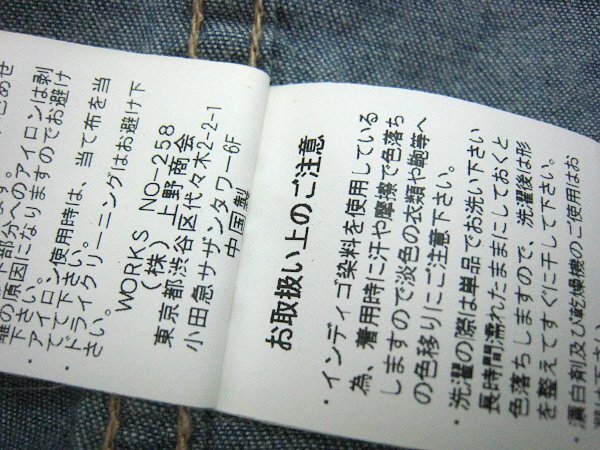 下部分へのアイロンは剥
離の原因になりますのでお避け
下さい。
アイロン使用時は、当て布を当
てて下さい。
ドライクリーニングはお避け下
さい。
WORKS NO-258
(株)上野商会
東京都渋谷区代々木2-2-1
小田急サザンタワー6F
中国製
お取扱い上のご注意
・インディゴ染料を使用している
為、着用時に汗や摩擦で色落ち
しますので淡色の衣類や鞄等へ
の色移りにご注意下さい。
・洗濯の際は単品でお洗い下さい
長時間濡れたままにしておくと
色落ちしますので、洗濯後は形
を整えてすぐに干して下さい。
・漂白剤及び乾燥機のご使用はお
避け下さい